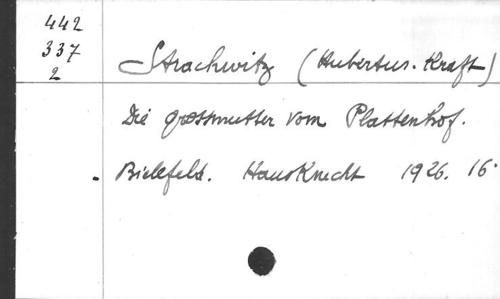 442
337
2
Strachwitz (Hubertus-Kraft)
Die grossmutter vom Plattenhof.
Bielefeld. Hausknecht 1926. 16°